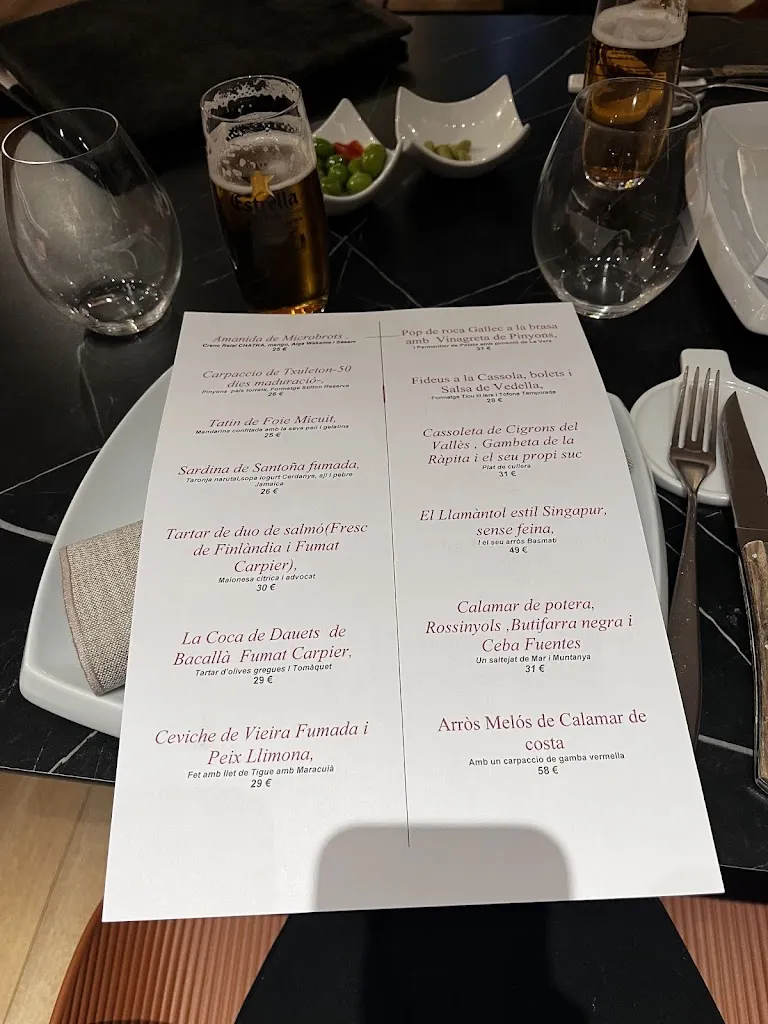 Estrella
Amanida de Microbrots ,
Cranc Reial CHATKA, mango, Alga Wakame i Sesam
25 €
Carpaccio de Txuleton-50
dies maduració-,
Pinyons, pais torrats, Formatge Stilton Reserva
26 €
Tatin de Foie Micuit,
Mandarina confitada amb la seva pell i gelatina
25 €
Sardina de Santoña fumada,
Taronja narutal,sopa Iogurt Cerdanya, ají i pebre
Jamaica
26 €
Tartar de duo de salmó(Fresc
de Finlàndia i Fumat
Carpier),
Maionesa cítrica i advocat
30 €
La Coca de Dauets de
Bacallà Fumat Carpier,
Tartar d'olives gregues I Tomàquet
29 €
Ceviche de Vieira Fumada i
Peix Llimona,
Fet amb llet de Tigue amb Maracuià
29 €
Pop de roca Gallec a la brasa
amb Vinagreta de Pinyons,
i Parmentier de Patata amb pimentó de La Vera
31 €
Fideus a la Cassola, bolets i
Salsa de Vedella,
Formatge Tou
i Tòfona Temporada
28 €
Cassoleta de Cigrons del
Vallès , Gambeta de la
Ràpita i el seu propi suc
Plat de cullera
31 €
El Llamàntol estil Singapur,
sense feina,
I el seu arròs Basmati
49 €
Calamar de potera,
Rossinyols ,Butifarra negra i
Ceba Fuentes
Un saltejat de Mar i Muntanya
31 €
Arròs Melós de Calamar de
costa
Amb un carpaccio de gamba vermella
58 €